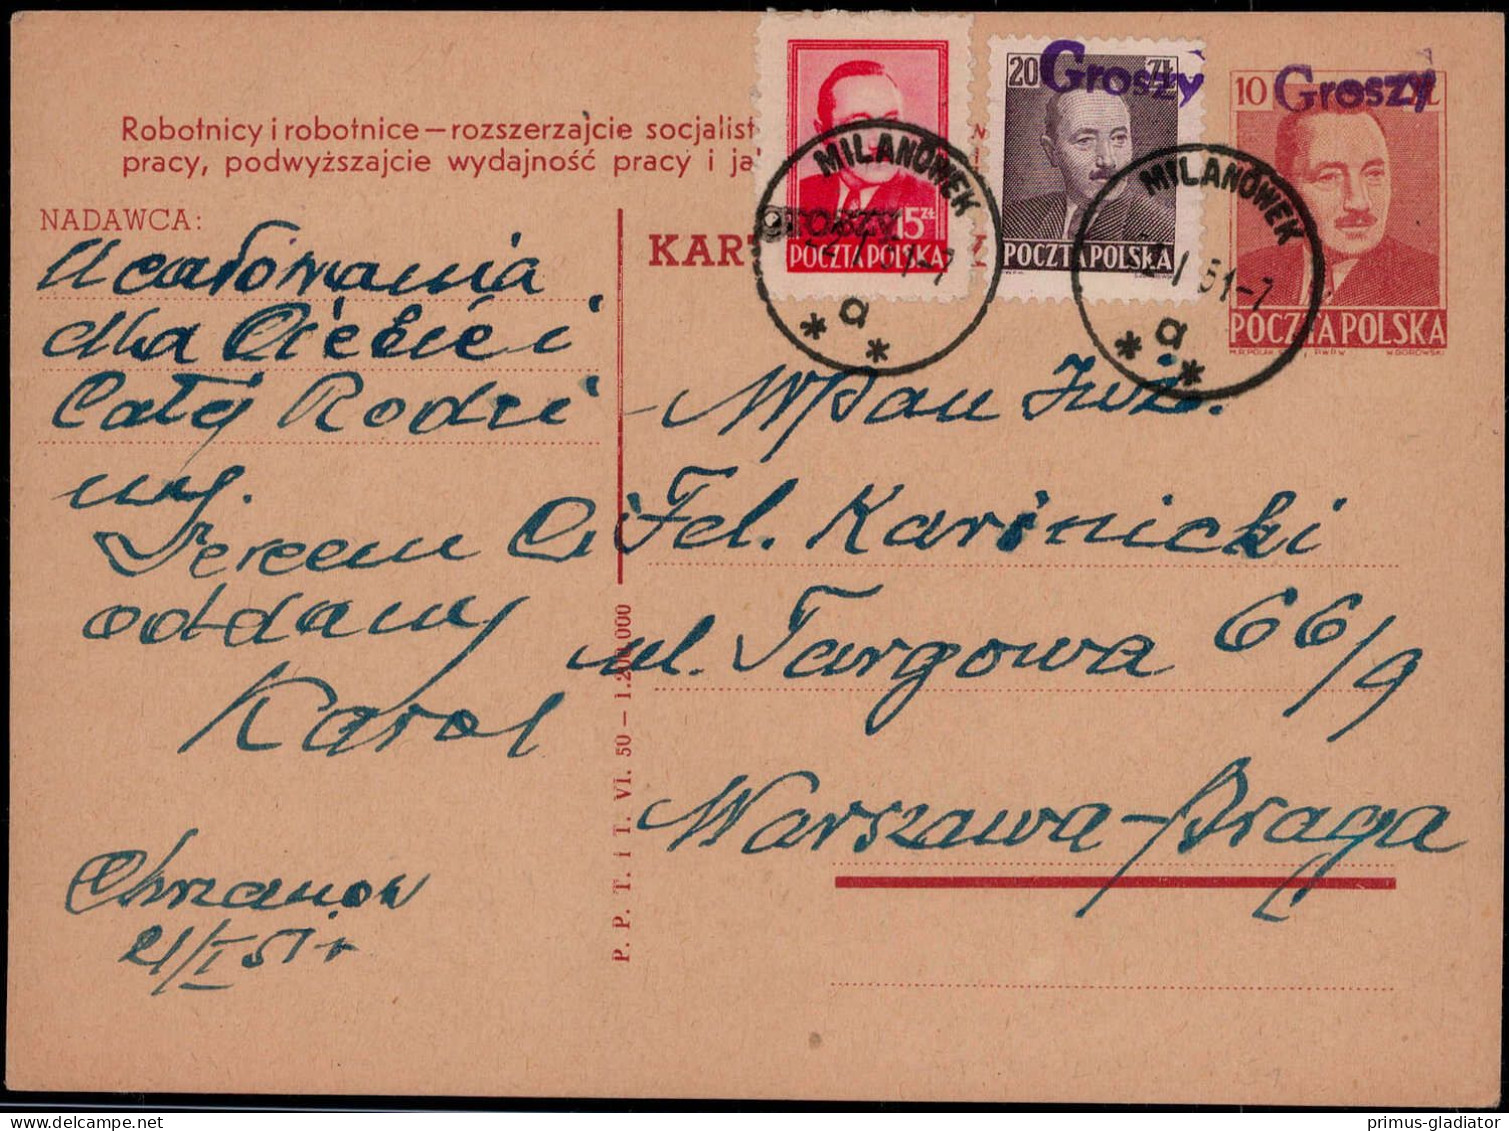 Robotnicy i robotnice — rozszerzajcie socjalist
pracy, podwyższajcie wydajność pracy i ja
NADAWCA:
Ucałowania
dla Ciebie i
Całej Rodzi
ny.
Sercem Ci
oddany
Karol
Chrzanów
21/I 51 r
P. P. T. i T. VI. 50 – 1.200.000
KART
15 zł
groszy
POCZTA POLSKA
20 ZŁ
Groszy
POCZTA POLSKA
10 ZŁ
Groszy
POCZTA POLSKA
M.R. POLAK P.W.P.W. W. BOROWSKI
MILANÓWEK
I 51-7
a
* *
MILANÓWEK
I 51-7
a
* *
WPan Inż.
Fel. Karśnicki
ul. Targowa 66/9
Warszawa-Praga
primus-gladiator